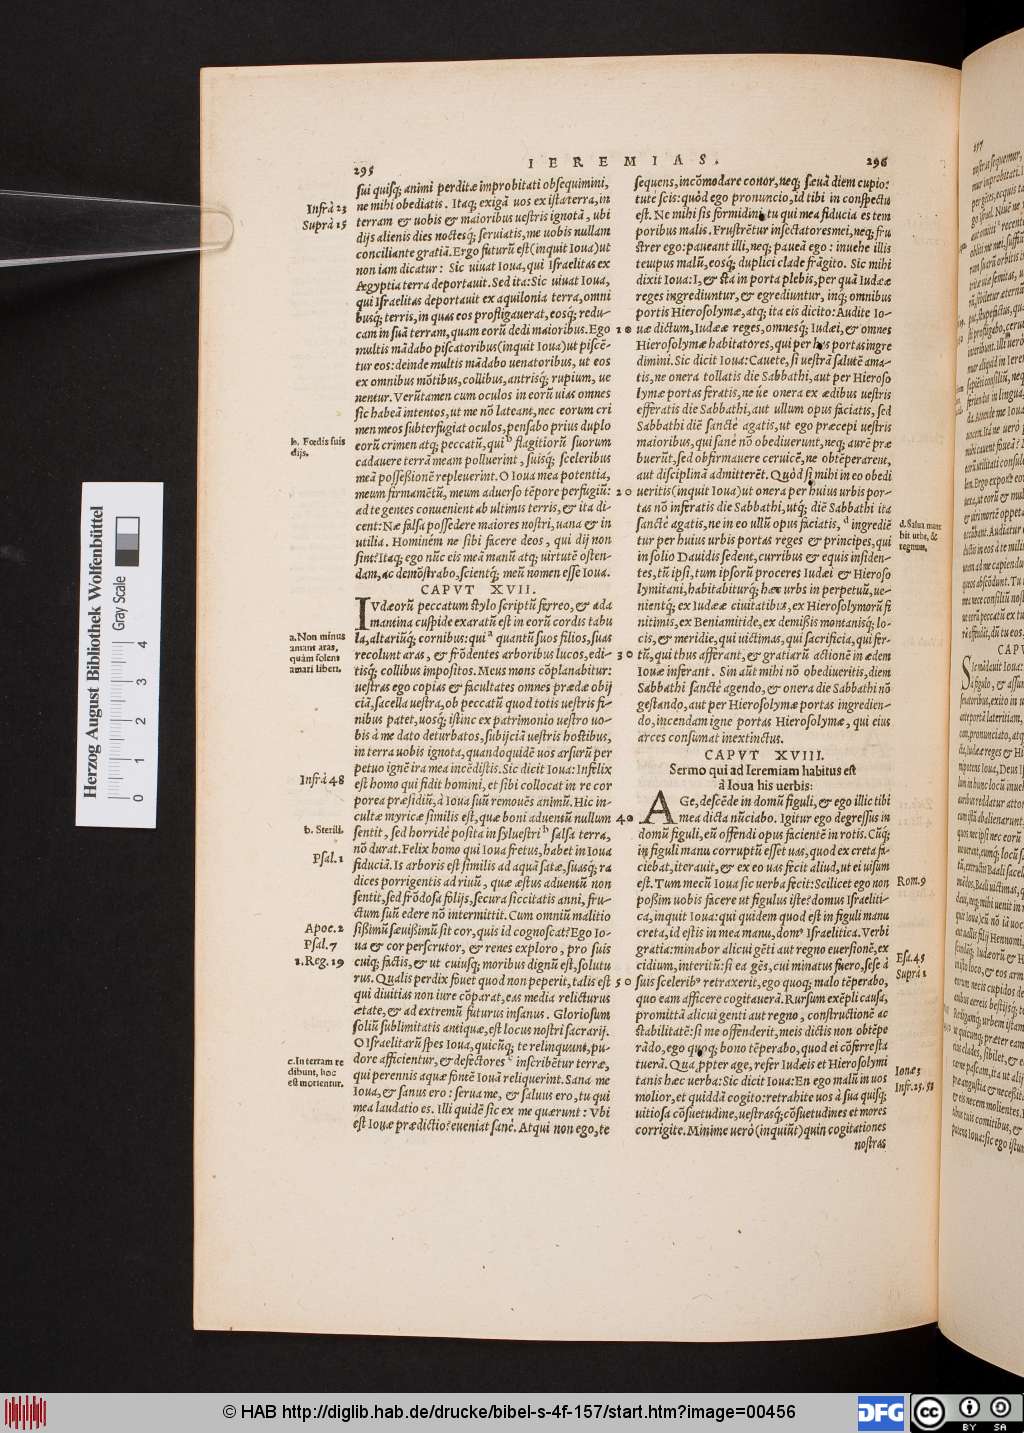 295
IEREMIAS.
296
Infrà 23
Suprà 15
sui quisq; animi perditæ improbitati obsequimini,
ne mihi obediatis. Itaq; exigã uos ex ista terra, in
terram & uobis & maioribus uestris ignotã, ubi
dijs alienis dies noctesq; seruiatis, me uobis nullam
conciliante gratiã. Ergo futurũ est (inquit Ioua) ut
non iam dicatur: Sic uiuat Ioua, qui Israelitas ex
Ægyptia terra deportauit. Sed ita: Sic uiuat Ioua,
qui Israelitas deportauit ex aquilonia terra, omni
busq; terris, in quas eos profligauerat, eosq; redu-
cam in suã terram, quam eorũ dedi maioribus. Ego
multis mãdabo piscatoribus (inquit Ioua) ut piscẽ-
tur eos: deinde multis mãdabo uenatoribus, ut eos
ex omnibus mõtibus, collibus, antrisq; rupium, ue
nentur. Verũtamen cum oculos in eorũ uias omnes
sic habeã intentos, ut me nõ lateant, nec eorum cri
men meos subterfugiat oculos, pensabo prius duplo
eorũ crimen atq; peccatũ, qui b flagitiorũ suorum
cadauere terrã meam polluerint, suisq; sceleribus
meã possessionẽ repleuerint. O Ioua mea potentia,
meum firmamẽtũ, meum aduerso tẽpore perfugiũ:
ad te gentes conuenient ab ultimis terris, & ita di-
cent: Næ falsa possedere maiores nostri, uana & in
utilia. Hominẽm ne sibi facere deos, qui dij non
sint? Itaq; ego nũc eis meã manũ atq; uirtutẽ osten-
dam, ac demõstrabo, scientq; meũ nomen esse Ioua.
b. Fœdis suis
dijs.
CAPVT XVII.
IVdæorũ peccatum stylo scriptũ ferreo, & ada
mantina cuspide exaratũ est in eorũ cordis tabu
la, altariũq; cornibus: qui a quantũ suos filios, suas
recolunt aras, & frõdentes arboribus lucos, edi-
tisq; collibus impositos. Meus mons cõplanabitur:
uestras ego copias & facultates omnes prædæ obij
ciã, sacella uestra, ob peccatũ quod totis uestris fi-
nibus patet, uosq; istinc ex patrimonio uestro uo-
bis à me dato deturbatos, subijciã uestris hostibus,
in terra uobis ignota, quandoquidẽ uos arsurũ per
petuo ignẽ ira mea incẽdistis. Sic dicit Ioua: Infelix
est homo qui fidit homini, et sibi collocat in re cor
porea præsidiũ, à Ioua suũ remouẽs animũ. Hic in-
cultæ myricæ similis est, quæ boni aduentũ nullum
sentit, sed horridè posita in syluestri b salsa terra,
nõ durat. Felix homo qui Ioua fretus, habet in Ioua
fiduciã. Is arboris est similis ad aquã satæ, suasq; ra
dices porrigentis ad riuũ, quæ æstus aduentũ non
sentit, sed frõdosa folijs, secura siccitatis anni, fru-
ctum suũ edere nõ intermittit. Cum omniũ malitio
sissimũ sæuissimũ sit cor, quis id cognoscat? Ego Io-
ua & cor perscrutor, & renes exploro, pro suis
cuiq; factis, & ut cuiusq; moribus dignũ est, solutu
rus. Qualis perdix fouet quod non peperit, talis est
qui diuitias non iure cõparat, eas media relicturus
ætate, & ad extremũ futurus insanus. Gloriosum
soliũ sublimitatis antiquæ, est locus nostri sacrarij.
O Israelitarũ spes Ioua, quicũq; te relinquunt, pu-
dore afficientur, & defectores c inscribẽtur terræ,
qui perennis aquæ fontẽ Iouã reliquerint. Sana me
Ioua, & sanus ero: serua me, & saluus ero, tu qui
mea laudatio es. Illi quidẽ sic ex me quærunt: Vbi
est Iouæ prædictio? eueniat sanè. Atqui non ego, te
a. Non minus
amant aras,
quàm solent
amari liberi.
Infrà 48
b. Sterili.
Psal. 1
Apoc. 2
Psal. 7
1. Reg. 19
c. In terram re
dibunt, hoc
est morientur.
10
20
30
40
50
sequens, incõmodare conor, neq; sæuã diem cupio:
tute scis: quòd ego pronuncio, id tibi in conspectu
est. Ne mihi sis formidini, tu qui mea fiducia es tem
poribus malis. Frustrẽtur insectatores mei, neq; fru
strer ego: paueant illi, neq; paueã ego: inuehe illis
tempus malũ, eosq; duplici clade frãgito. Sic mihi
dixit Ioua: I, & sta in porta plebis, per quã Iudææ
reges ingrediuntur, & egrediuntur, inq; omnibus
portis Hierosolymæ, atq; ita eis dicito: Audite Io-
uæ dictum, Iudææ reges, omnesq; Iudæi, & omnes
Hierosolymæ habitatores, qui per has portas ingre
dimini. Sic dicit Ioua: Cauete, si uestrã salutẽ ama-
tis, ne onera tollatis die Sabbathi, aut per Hieroso
lymæ portas feratis, ne ue onera ex ædibus uestris
efferatis die Sabbathi, aut ullum opus faciatis, sed
Sabbathi diẽ sanctè agatis, ut ego præcepi uestris
maioribus, qui sanè nõ obediuerunt, neq; aurẽ præ
buerũt, sed obfirmauere ceruicẽ, ne obtẽperarent,
aut disciplinã admitterẽt. Quòd si mihi in eo obedi
ueritis (inquit Ioua) ut onera per huius urbis por-
tas nõ inferatis die Sabbathi, utq; diẽ Sabbathi ita
sanctè agatis, ne in eo ullũ opus faciatis, d ingrediẽ
tur per huius urbis portas reges & principes, qui
in solio Dauidis sedent, curribus & equis insiden-
tes, tũ ipsi, tum ipsorũ proceres Iudæi & Hieroso
lymitani, habitabiturq; hæc urbs in perpetuũ, ue-
nientq; ex Iudææ ciuitatibus, ex Hierosolymorũ fi
nitimis, ex Beniamitide, ex demissis montanisq; lo-
cis, & meridie, qui uictimas, qui sacrificia, qui fer-
tũ, qui thus afferant, & gratiarũ actionẽ in ædem
Iouæ inferant. Sin aũt mihi nõ obediueritis, diem
Sabbathi sanctè agendo, & onera die Sabbathi nõ
gestando, aut per Hierosolymæ portas ingredien-
do, incendam igne portas Hierosolymæ, qui eius
arces consumat inextinctus.
d. Salua mane
bit urbs, &
regnum.
CAPVT XVIII.
Sermo qui ad Ieremiam habitus est
à Ioua his uerbis:
AGe, descẽde in domũ figuli, & ego illic tibi
mea dicta nũciabo. Igitur ego degressus in
domũ figuli, eũ offendi opus facientẽ in rotis. Cũq;
in figuli manu corruptũ esset uas, quod ex creta fa-
ciebat, iterauit, & ex eo uas fecit aliud, ut ei uisum
est. Tum mecũ Ioua sic uerba fecit: Scilicet ego non
possim uobis facere ut figulus iste? domus Israeliti-
ca, inquit Ioua: qui quidem quod est in figuli manu
creta, id estis in mea manu, domꝰ Israelitica. Verbi
gratia: minabor alicui gẽti aut regno euersionẽ, ex
cidium, interitũ: si ea gẽs, cui minatus fuero, sese à
suis sceleribꝰ retraxerit, ego quoq; malo tẽperabo,
quo eam afficere cogitauerã. Rursum exẽpli causa,
promittã alicui genti aut regno, constructionẽ ac
stabilitatẽ: si me offenderit, meis dictis non obtẽpe
rãdo, ego quoq; bono tẽperabo, quod ei cõferre sta
tuerã. Qua ppter age, refer Iudæis et Hierosolymi
tanis hæc uerba: Sic dicit Ioua: En ego malũ in uos
molior, et quiddã cogito: retrahite uos à sua quisq;
uitiosa cõsuetudine, uestrasq; cõsuetudines et mores
corrigite. Minimè uerò (inquiũt) quin cogitationes
nostras
Rom. 9
Esa. 45
Suprà 1
Ionæ 3
Infr. 25. 58
Herzog August Bibliothek Wolfenbüttel
Gray Scale
0 1 2 3 4
© HAB http://diglib.hab.de/drucke/bibel-s-4f-157/start.htm?image=00456
DFG
cc
BY SA